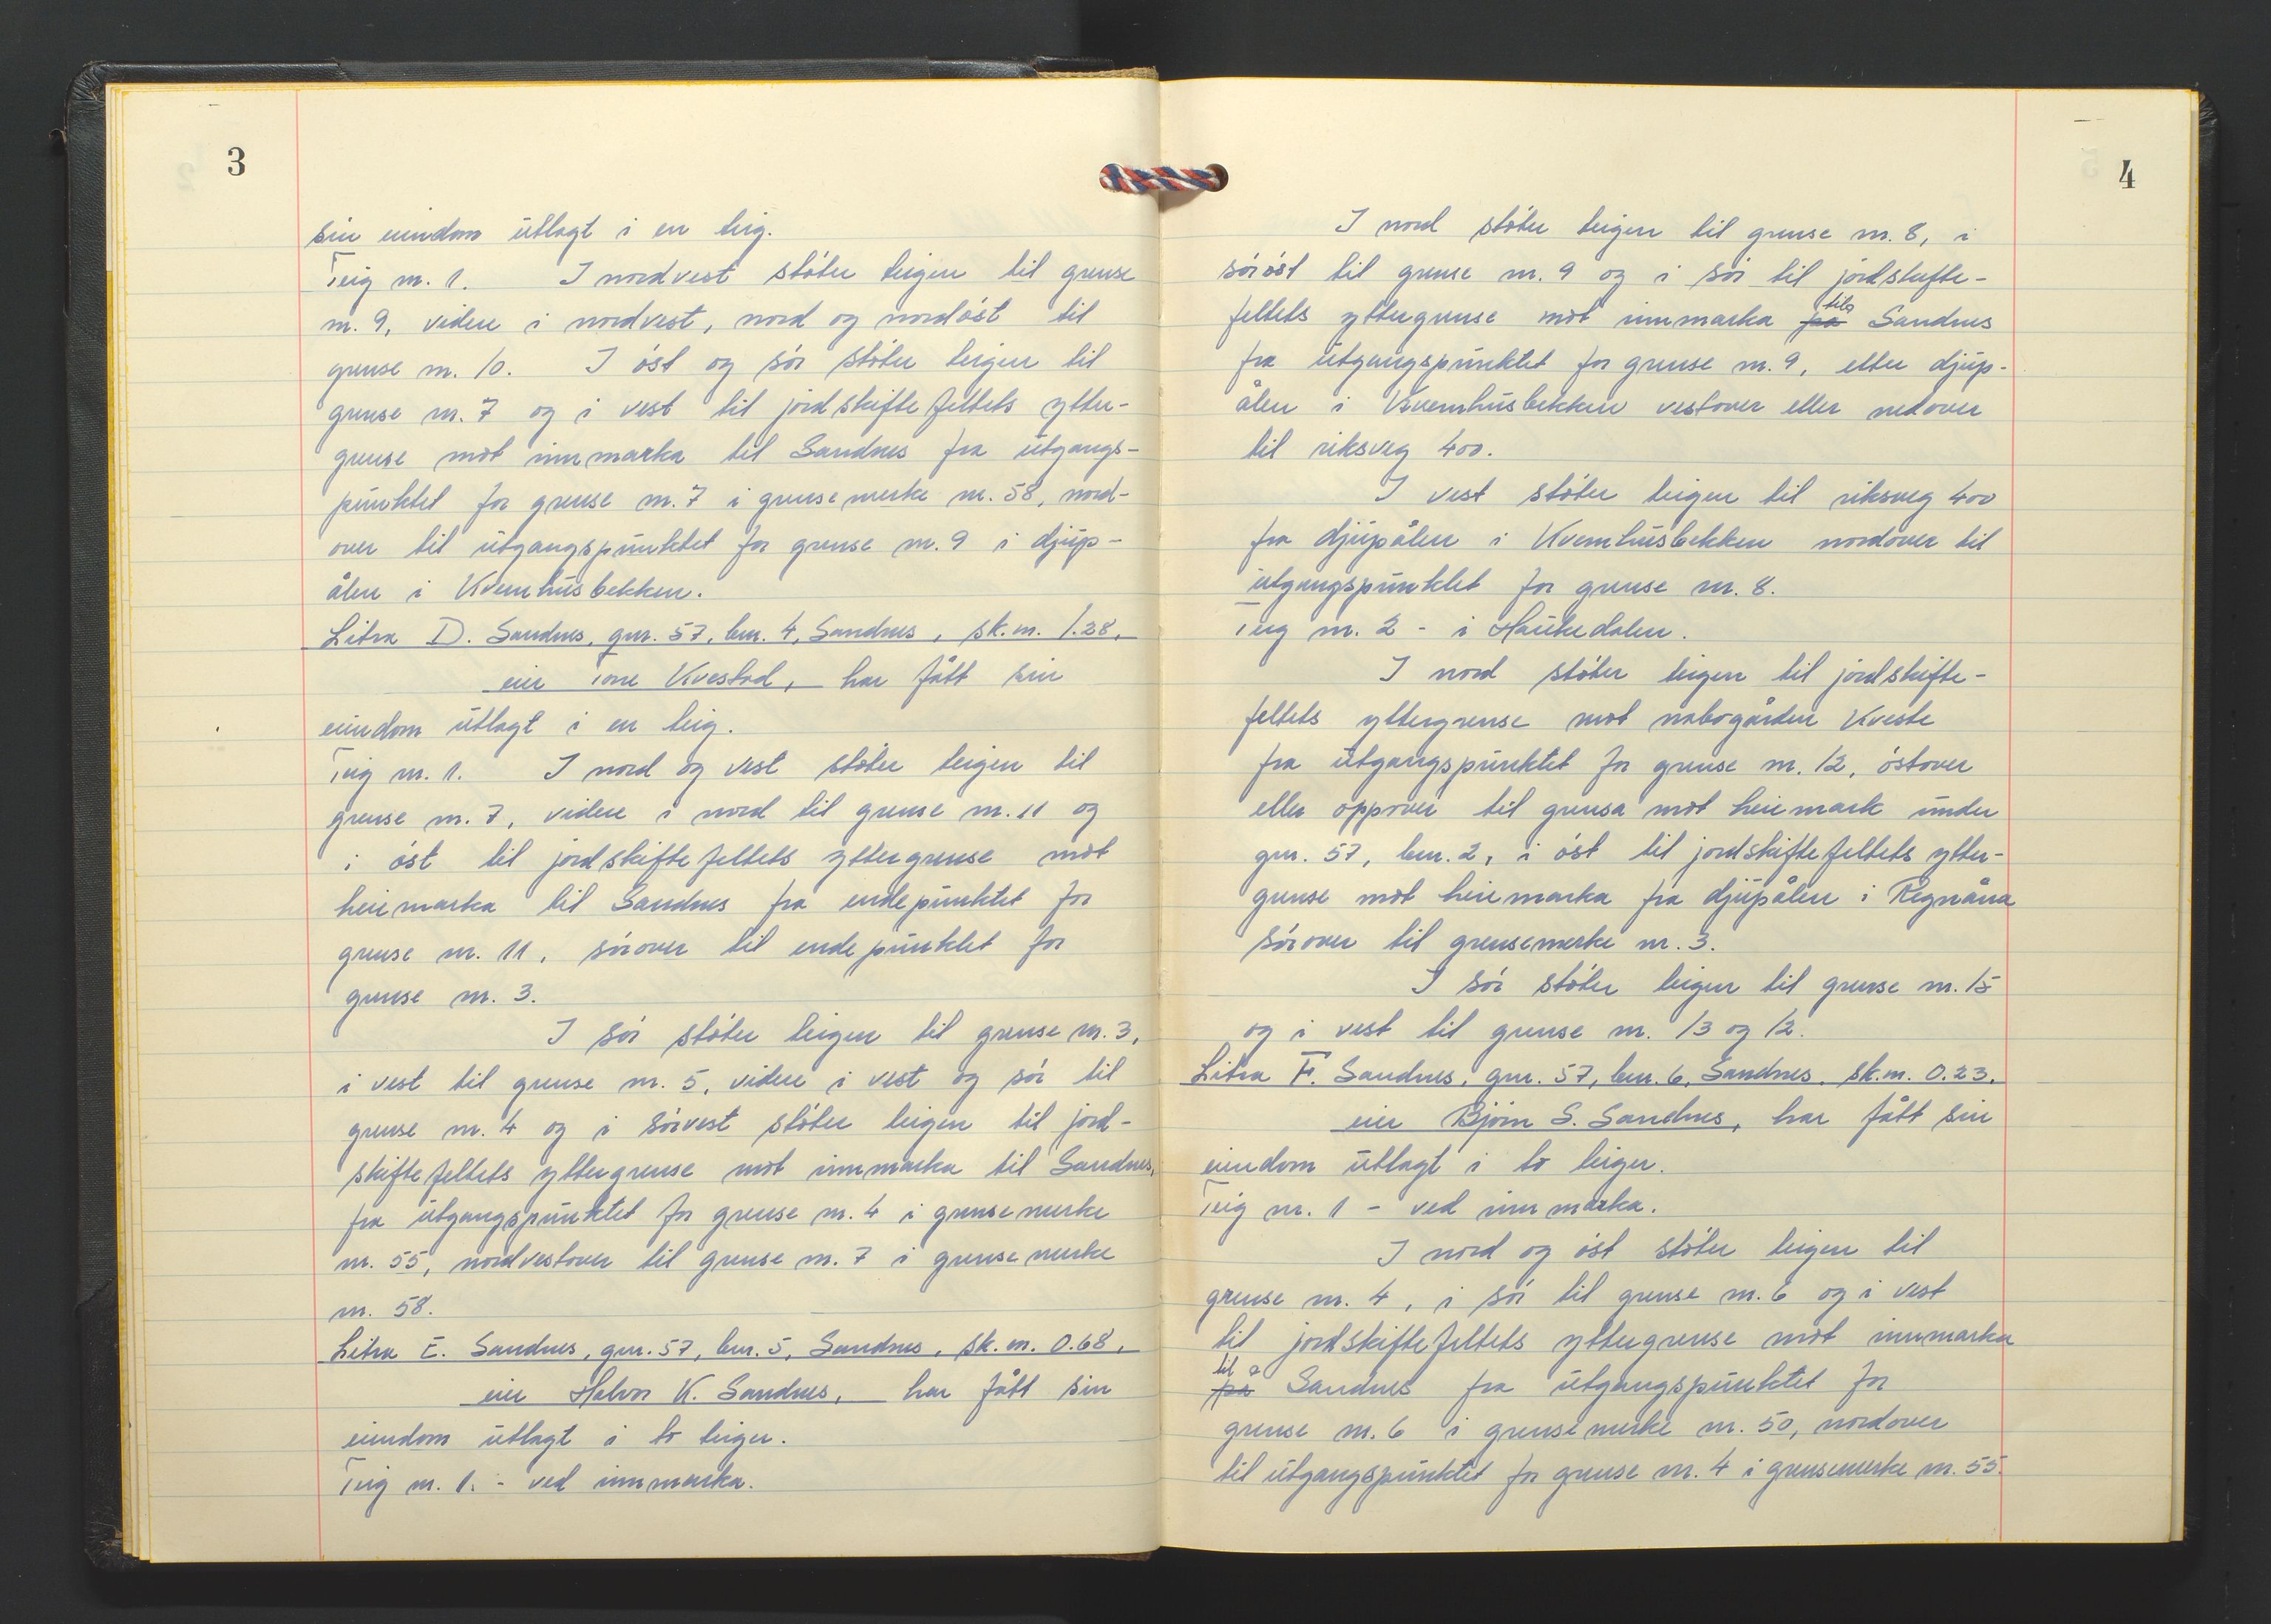 3
sin eiendom utlagt i en teig.
Teig nr. 1. I nordvest støter teigen til grense
nr. 9, videre i nordvest, nord og nordøst til
grense nr. 10. I øst og sør støter teigen til
grense nr. 7 og i vest til jordskiftefeltets ytter-
grense mot innmarka til Sandnes fra utgangs-
punktet for grense nr. 7 i grensemerke nr. 58, nord-
over til utgangspunktet for grense nr. 9 i djup-
ålen i Kvernhusbekken.
Litra D. Sandnes, gnr. 57, bnr. 4, Sandnes, sk.m. 1.28,
eier Tone Kvestad, har fått sin
eiendom utlagt i en teig.
Teig nr. 1. I nord og vest støter teigen til
grense nr. 7, videre i nord til grense nr. 11 og
i øst til jordskiftefeltets yttergrense mot
heiemarka til Sandnes fra endepunktet for
grense nr. 11, sørover til endepunktet for
grense nr. 3.
I sør støter teigen til grense nr. 3,
i vest til grense nr. 5, videre i vest og sør til
grense nr. 4 og i sørvest støter teigen til jord-
skiftefeltets yttergrense mot innmarka til Sandnes,
fra utgangspunktet for grense nr. 4 i grensemerke
nr. 55, nordvestover til grense nr. 7 i grensemerke
nr. 58.
Litra E. Sandnes, gnr. 57, bnr. 5, Sandnes, sk.m. 0.68,
eier Halvor K. Sandnes, har fått sin
eiendom utlagt i to teiger.
Teig nr. 1. - ved innmarka.
4
I nord støter teigen til grense nr. 8, i
sørøst til grense nr. 9 og i sør til jordskifte-
feltets yttergrense mot innmarka på til Sandnes
fra utgangspunktet for grense nr. 9, etter djup-
ålen i Kvernhusbekken vestover eller nedover
til riksveg 400.
I vest støter teigen til riksveg 400
fra djupålen i Kvernhusbekken nordover til
utgangspunktet for grense nr. 8.
Teig nr. 2 - i Haukedalen.
I nord støter teigen til jordskifte-
feltets yttergrense mot nabogården Kveste
fra utgangspunktet for grense nr. 12, østover
eller oppover til grensa mot heiemark under
gnr. 57, bnr. 2, i øst til jordskiftefeltets ytter-
grense mot heiemarka fra djupålen i Regnåna
sørover til grensemerke nr. 3.
I sør støter teigen til grense nr. 15
og i vest til grense nr. 13 og 12.
Litra F. Sandnes, gnr. 57, bnr. 6, Sandnes, sk.m. 0.23,
eier Bjørn S. Sandnes, har fått sin
eiendom utlagt i to teiger.
Teig nr. 1 - ved innmarka.
I nord og øst støter teigen til
grense nr. 4, i sør til grense nr. 6 og i vest
til jordskiftefeltets yttergrense mot innmarka
på til Sandnes fra utgangspunktet for
grense nr. 6 i grensemerke nr. 50, nordover
til utgangspunktet for grense nr. 4 i grensemerke nr. 55.